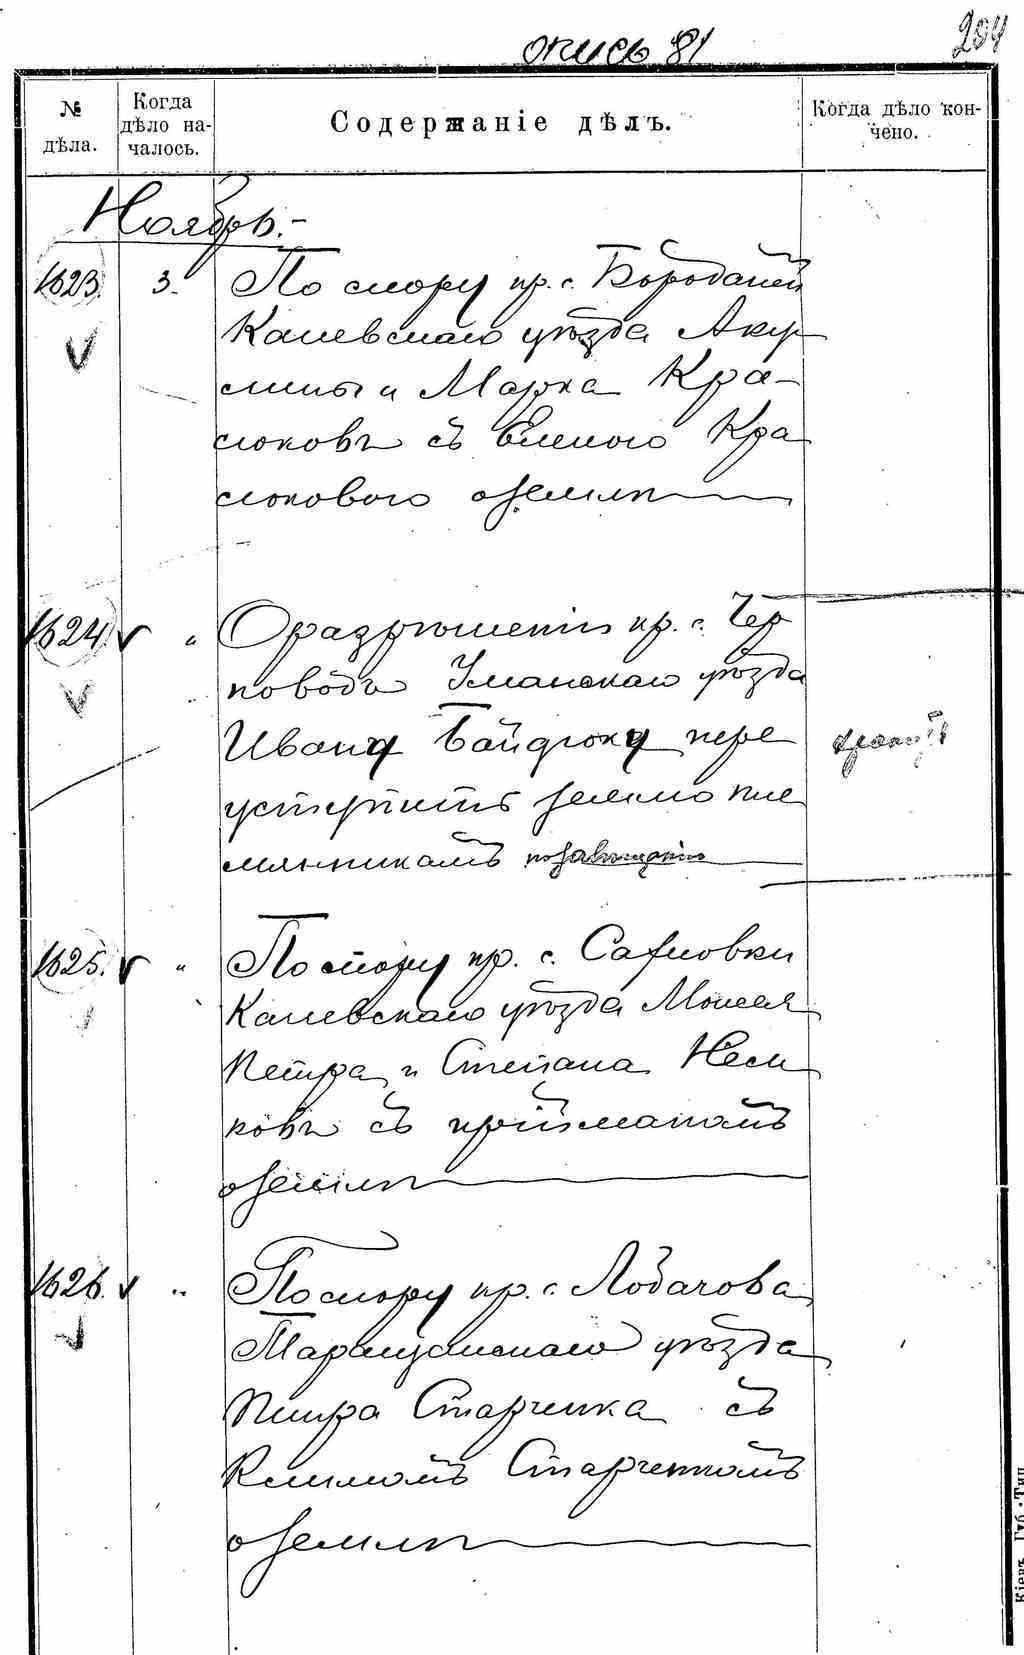 опись 81
204
№ дѣла.
Когда дѣло на-
чалось.
Содержаніе дѣлъ.
Когда дѣло кон-
чено.
Ноябрь.-
1623. 3. По спору кр. с. Бородани
Каневскаго уѣзда Аку
лины и Марка Кра-
сюковъ съ Еленою Кра
сюковою о землѣ
1624 " О разрѣшеніи кр. с. Чер
поводъ Уманскаго уѣзда
Ивану Байдюку пере
уступить землю пле
мянникамъ по завѣщанію
1625. " По спору кр. с. Сахновки
Каневскаго уѣзда Моисея
Петра и Степана
ковъ съ пріймакомъ
о землѣ
1626. " По спору кр. с. Лобачова
Таращанскаго уѣзда
Петра Старченка съ
Климомъ Старченкомъ
о землѣ
Кіевъ. Губ. Тип.